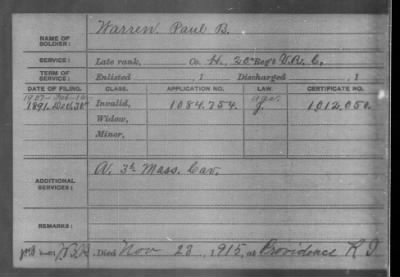 NAME OF SOLDIER: Warren Paul B.
SERVICE: Late rank, Co. H, 20" Reg't V.R.C.,
TERM OF SERVICE: Enlisted , 1 Discharged , 1
DATE OF FILING. CLASS. APPLICATION NO. LAW CERTIFICATE NO.
1907- Feb-16- age.
1891. Dec. 30" Invalid, 1084.754. J. 1,012,050.
Widow,
Minor,
ADDITIONAL SERVICES: A. 3d Mass. Cav.
REMARKS:
Died Nov 23 , 1915, at Providence R I